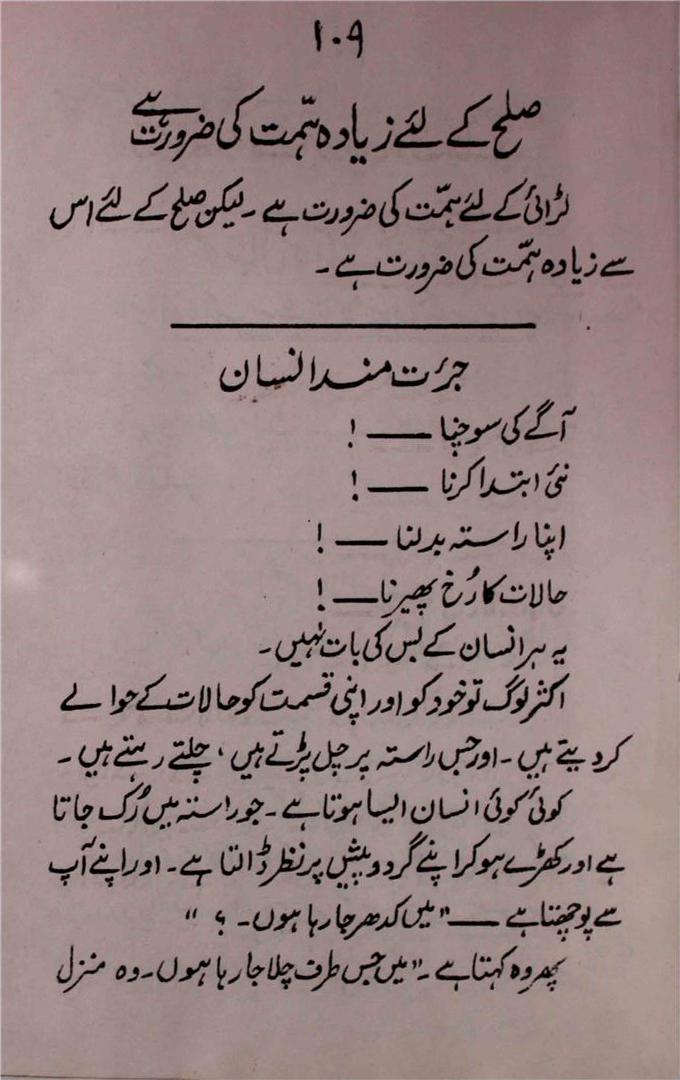 ۱۰۹
صلح کے لئے زیادہ ہمّت کی ضرورت ہے
لڑائی کے لئے ہمّت کی ضرورت ہے ۔ لیکن صلح کے لئے اس
سے زیادہ ہمّت کی ضرورت ہے ۔
جرئت مند انسان
آگے کی سوچنا —— !
نئی ابتدا کرنا —— !
اپنا راستہ بدلنا —— !
حالات کا رُخ پھیرنا —— !
یہ ہر انسان کے بس کی بات نہیں ۔
اکثر لوگ تو خود کو اور اپنی قسمت کو حالات کے حوالے
کر دیتے ہیں ۔ اور جس راستہ پر چل پڑتے ہیں ، چلتے رہتے ہیں ۔
کوئی کوئی انسان ایسا ہوتا ہے ۔ جو راستہ میں رُک جاتا
ہے اور کھڑے ہو کر اپنے گرد و پیش پر نظر ڈالتا ہے ۔ اور اپنے آپ
سے پوچھتا ہے —— "میں کدھر جا رہا ہوں ۔ ؟ "
پھر وہ کہتا ہے ۔ "میں جس طرف چلا جا رہا ہوں ۔ وہ منزل